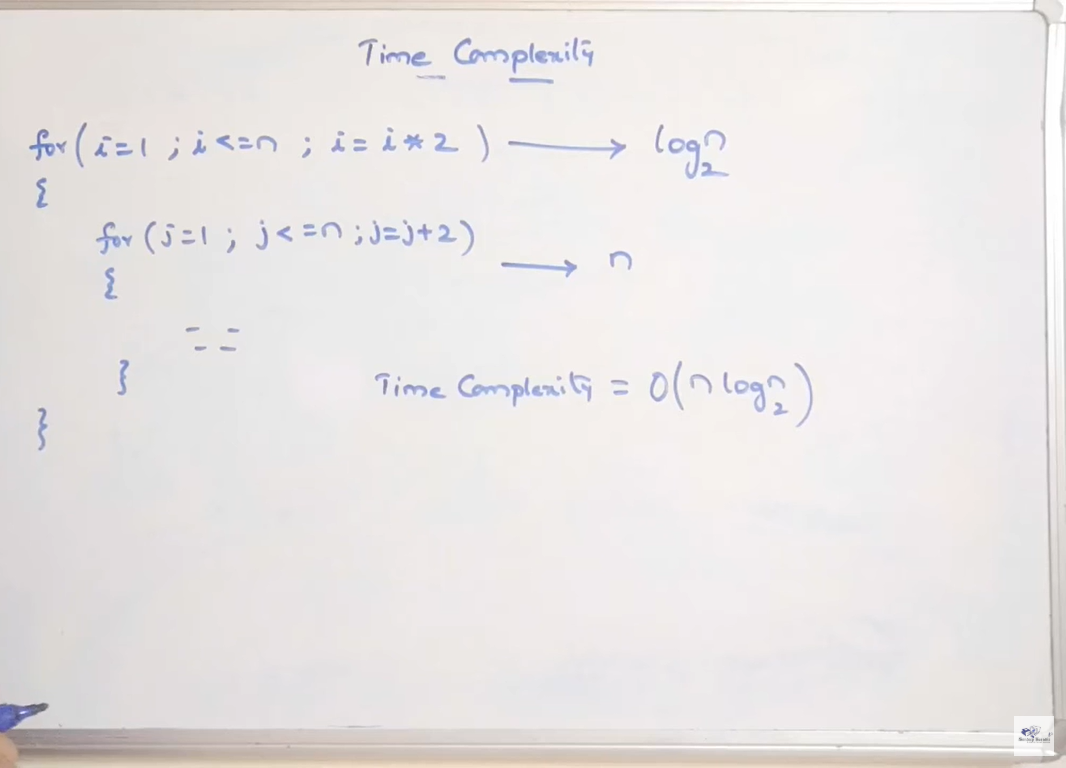 Time Complexity
for ( i=1 ; i<=n ; i= i * 2 ) ⟶ log₂n
{
for (j=1 ; j<=n ; j=j+2) ⟶ n
{
}
Time Complexity = O(n log₂n)
}